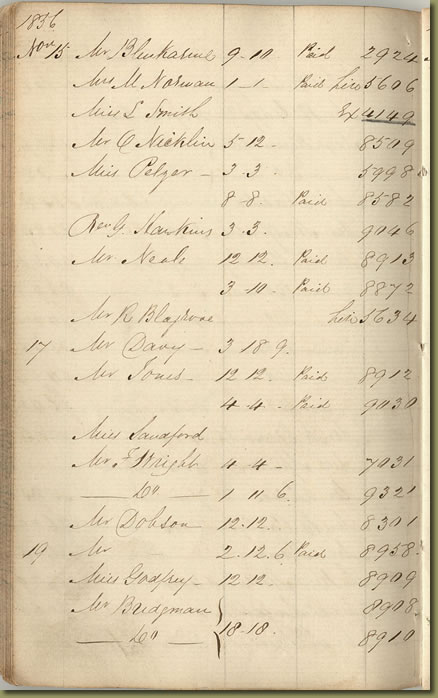 1856
Nov 15 Mr Blenkarne 9-10 Paid 2924
Mrs M Norman 1-1- Paid 5606
Miss L Smith Ex 4149
Mr C Nicklin 5-12- 8509
Miss Pelzer - 3.3. 5998
8-8. Paid 8582
Rev G. Hawkins 3.3. 9046
Mr. Neale 12.12. Paid 8913
3.10. Paid 8872
Mr R Blagrove 5634
17 Mr Davy - 3 18 9.
Mr Jones - 12 12. Paid 8912
4-4. - Paid 9030
Miss Sandford
Mr. F Wright 4 4 - 7031
— Do — 1 11 6. 9321
Mr Dobson 12.12. 8301
19 Mr 2.12.6 Paid 8958.
Miss Godfrey - 12 12. 8909
Mr Bridgman 8908.
— Do — 18-18. 8910